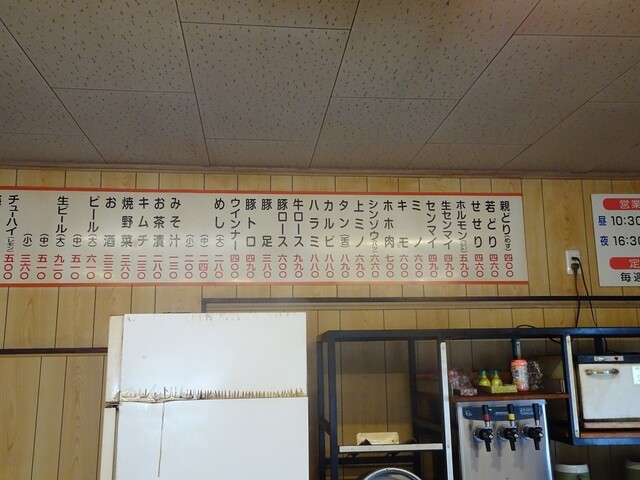 親どり(むね) 四〇〇
若どり 四六〇
せせり 四六〇
ホルモン 五九〇
生センマイ 四九〇
センマイ 四〇〇
ミノ 六〇〇
キモ 六〇〇
ホホ肉 七〇〇
シンゾウ 六六〇
上ミノ 六九〇
タン(舌) 八九〇
カルビ 八八〇
ハラミ 八八〇
牛ロース 九九〇
豚ロース 六〇〇
豚足 三八〇
豚トロ 四九〇
ウインナー 四〇〇
めし (大) 二八〇
(中) 二四〇
(小) 二〇〇
みそ汁 一三〇
お茶漬 二八〇
キムチ 二三〇
焼野菜 三六〇
お酒 三三〇
ビール(大) 六六〇
(中) 五一〇
生ビール(大) 九二〇
(中) 五一〇
(小)
チューハイ 五〇〇
営業
昼 10:30
夜 16:30
定
毎週